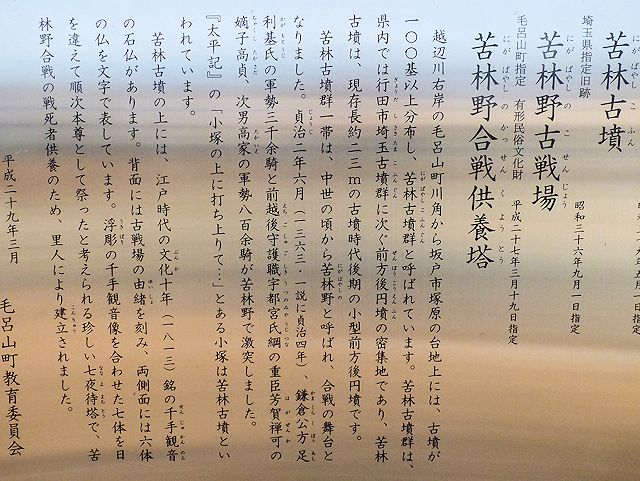 苦林古墳
埼玉県指定旧跡
昭和三十六年九月一日指定
苦林野古戦場
毛呂山町指定 有形民俗文化財
平成二十七年三月十九日指定
苦林野合戦供養塔
越辺川右岸の毛呂山町川角から坂戸市塚原の台地上には、古墳が
一〇〇基以上分布し、苦林古墳群と呼ばれています。苦林古墳群は、
県内では行田市埼玉古墳群に次ぐ前方後円墳の密集地であり、苦林
古墳は、現存長約二三mの古墳時代後期の小型前方後円墳です。
苦林古墳群一帯は、中世の頃から苦林野と呼ばれ、合戦の舞台と
なりました。貞治二年六月（一三六三・一説に貞治四年）、鎌倉公方足
利基氏の軍勢三千余騎と前越後守護職宇都宮氏綱の重臣芳賀禅可の
嫡子高貞、次男高家の軍勢八百余騎が苦林野で激突しました。
『太平記』の「小塚の上に打ち上りて…」とある小塚は苦林古墳とい
われています。
苦林古墳の上には、江戸時代の文化十年（一八一三）銘の千手観音
の石仏があります。背面には古戦場の由緒を刻み、両側面には六体
の仏を文字で表しています。浮彫の千手観音像を合わせた七体を日
を違えて順次本尊として祭ったと考えられる珍しい七夜待塔で、苦
林野合戦の戦死者供養のため、里人により建立されました。
平成二十九年三月
毛呂山町教育委員会